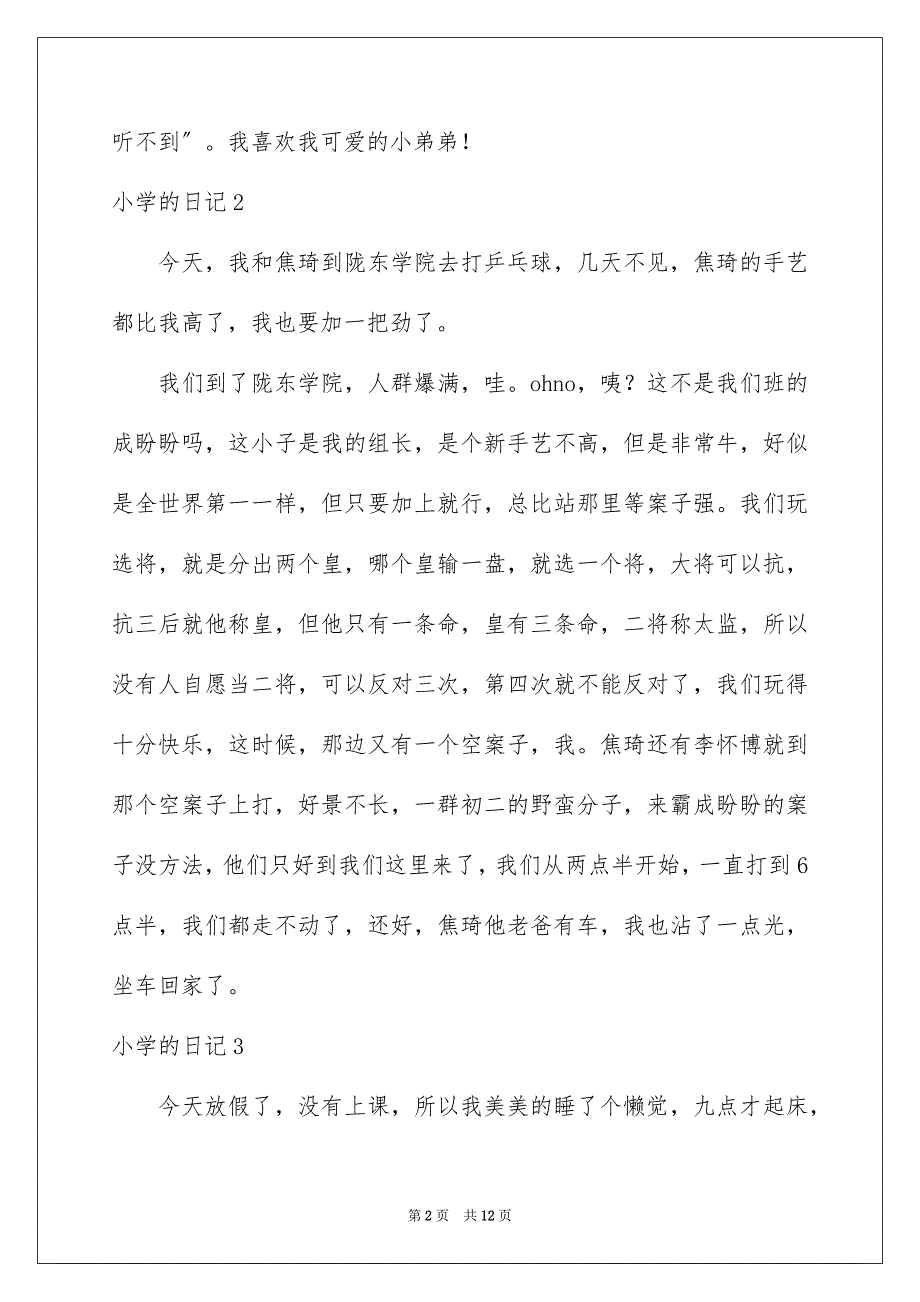 听不到〞。我喜欢我可爱的小弟弟！
小学的日记 2
今天，我和焦琦到陇东学院去打乒乓球，几天不见，焦琦的手艺
都比我高了，我也要加一把劲了。
我们到了陇东学院，人群爆满，哇。ohno，咦？这不是我们班的
成盼盼吗，这小子是我的组长，是个新手艺不高，但是非常牛，好似
是全世界第一一样，但只要加上就行，总比站那里等案子强。我们玩
选将，就是分出两个皇，哪个皇输一盘，就选一个将，大将可以抗，
抗三后就他称皇，但他只有一条命，皇有三条命，二将称太监，所以
没有人自愿当二将，可以反对三次，第四次就不能反对了，我们玩得
十分快乐，这时候，那边又有一个空案子，我。焦琦还有李怀博就到
那个空案子上打，好景不长，一群初二的野蛮分子，来霸成盼盼的案
子没方法，他们只好到我们这里来了，我们从两点半开始，一直打到 6
点半，我们都走不动了，还好，焦琦他老爸有车，我也沾了一点光，
坐车回家了。
小学的日记 3
今天放假了，没有上课，所以我美美的睡了个懒觉，九点才起床，
第 2 页 共 12 页